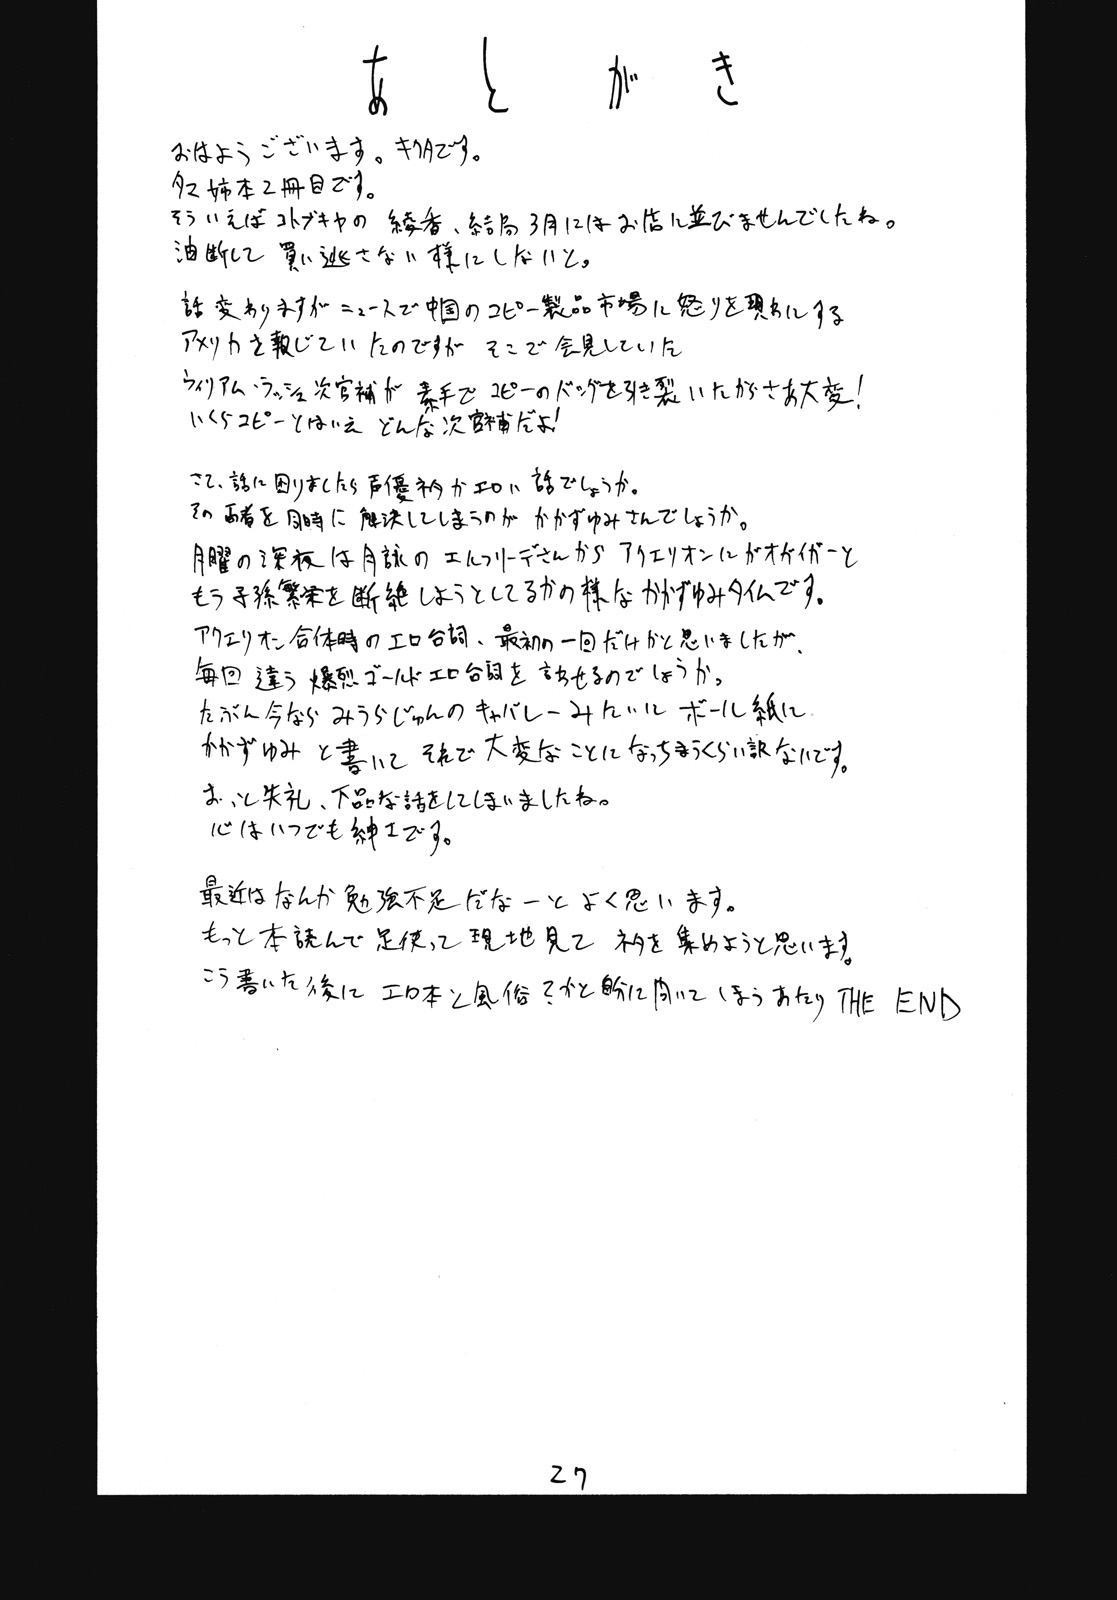 あとがき
おはようございます。キクタです。
タマ姉本2冊目です。
そういえばコトブキヤの 綾香、結局3月にはお店に並びませんでしたね。
油断して 買い逃さない様にしないと。
話変わりますがニュースで中国のコピー製品市場に怒りを現わにする
アメリカを報じていたのですが そこで会見していた
ウィリアム・ラッシュ次官補が 素手で コピーのバッグを引き裂いたからさあ大変!
いくらコピーとはいえ どんな次官補だよ!
さて、話に困りましたら声優ネタかエロい話でしょうか。
その両者を同時に解決してしまうのが かかずゆみさんでしょうか。
月曜の深夜は月詠の エルフリーデさんから アクエリオンにガオガイガーと
もう子孫繁栄を断絶しようとしてるかの様な かかずゆみタイムです。
アクエリオン合体時のエロ台詞、最初の一回だけかと思いましたが、
毎回 違う 爆烈ゴールドエロ台詞を 言わせるのでしょうか。
たぶん今なら みうらじゅんの キャバレーみたいに ボール紙に
かかずゆみ と書いて それで大変なことになっちまうくらい訳ないです。
おっと失礼、下品な話をしてしまいましたね。
心はいつでも紳士です。
最近はなんか勉強不足だなーと よく思います。
もっと本読んで足使って現地見て ネタを集めようと思います。
こう書いた後に エロ本と風俗?かと自分に聞いてしまうあたり THE END
27